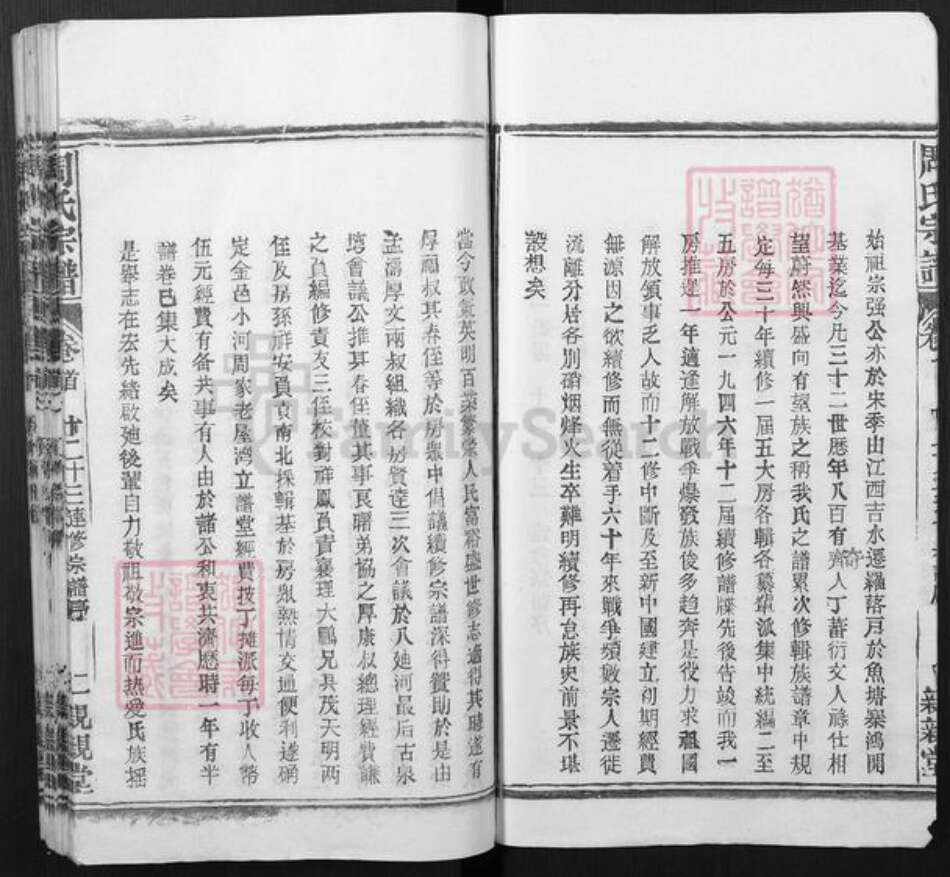 周氏宗譜
始祖宗强公亦於宋季由江西吉水遷羅落戸於魚塘㮣鴻開
基業迄今凡三十二世歷年八百有齊人丁蕃衍文人祿仕相
望蔚然興盛向有望族之稱我氏之譜累次修輯族譜章中規
定每三十年續修一屆五大房各輯各纂輩派集中統編二至
五房於公元一九四六年十二屆續修譜牒先後告竣而我一
房推遲一年適逢解放戰爭爆發族俊多趋奔是役力求祖國
解放領事乏人故而十二修中斷及至新中國建立初期經費
無源因之欲續修而無從着手六十年來戰爭頻數宗人遷徙
流離分居各別硝烟烽火生卒難明續修再怠族史前景不堪
設想矣
當今政氣英明百業繁榮人民富裕盛世修志適得其時遂有
厚福叔其春侄等於房眾中倡議續修宗譜深得贊助於是由
孟濤厚文兩叔組織各房賢達三次會議於八廸河最后古泉
塆會議公推其春侄董其事良曙弟協之厚康叔總理經費謙
之負編修責友三侄校對祥鳳負責襄理大鵬兄具茂天明两
侄及房孫祥安員責南北採輯基於房衆熱情交通便利遂碻
定金邑小河周家老屋湾立譜堂經費按丁攤派每丁收人幣
伍元經費有备共事有人由於諸公和衷共濟歷時一年有半
譜卷巳集大成矣
是舉志在宏先緒啟廸後輩自力敬祖敬宗進而热愛氏族摇
周氏宗譜
卷首
廿二十三連修宗譜序
二 親親堂
FamilySearch